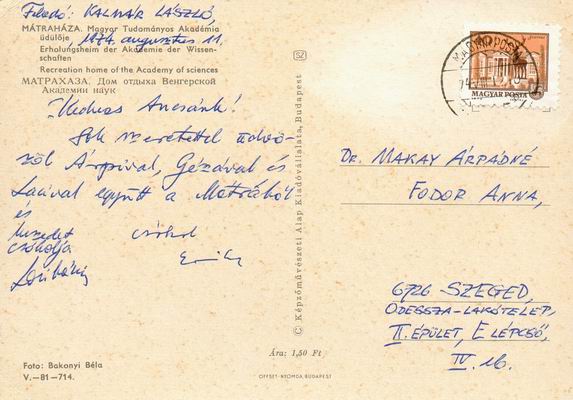 Feladó: KALMÁR LÁSZLÓ,
MÁTRAHÁZA. Magyar Tudományos Akadémia
üdülője 1974. augusztus 11.
Erholungsheim der Akademie der Wissen-
schaften
Recreation home of the Academy of sciences
МАТРАХАЗА. Дом отдыха Венгерской
Академии наук
Kedves Ancsánk!
Sok szeretettel üdvö-
zöl Árpival, Gézával és
Lacival együtt a Mátrából
és
kezedet csókol
csókolja
Foto: Bakonyi Béla
V.—81—714.
SZ
© Képzőművészeti Alap Kiadóvállalata, Budapest
Ára: 1,50 Ft
OFFSET-NYOMDA, BUDAPEST
MAGYAR POSTA
DR. MAKAY ÁRPÁDNÉ
FODOR ANNA,
6726 SZEGED,
ODESSZA-LAKÓTELEP,
II. ÉPÜLET, E LÉPCSŐ,
IV. 16.